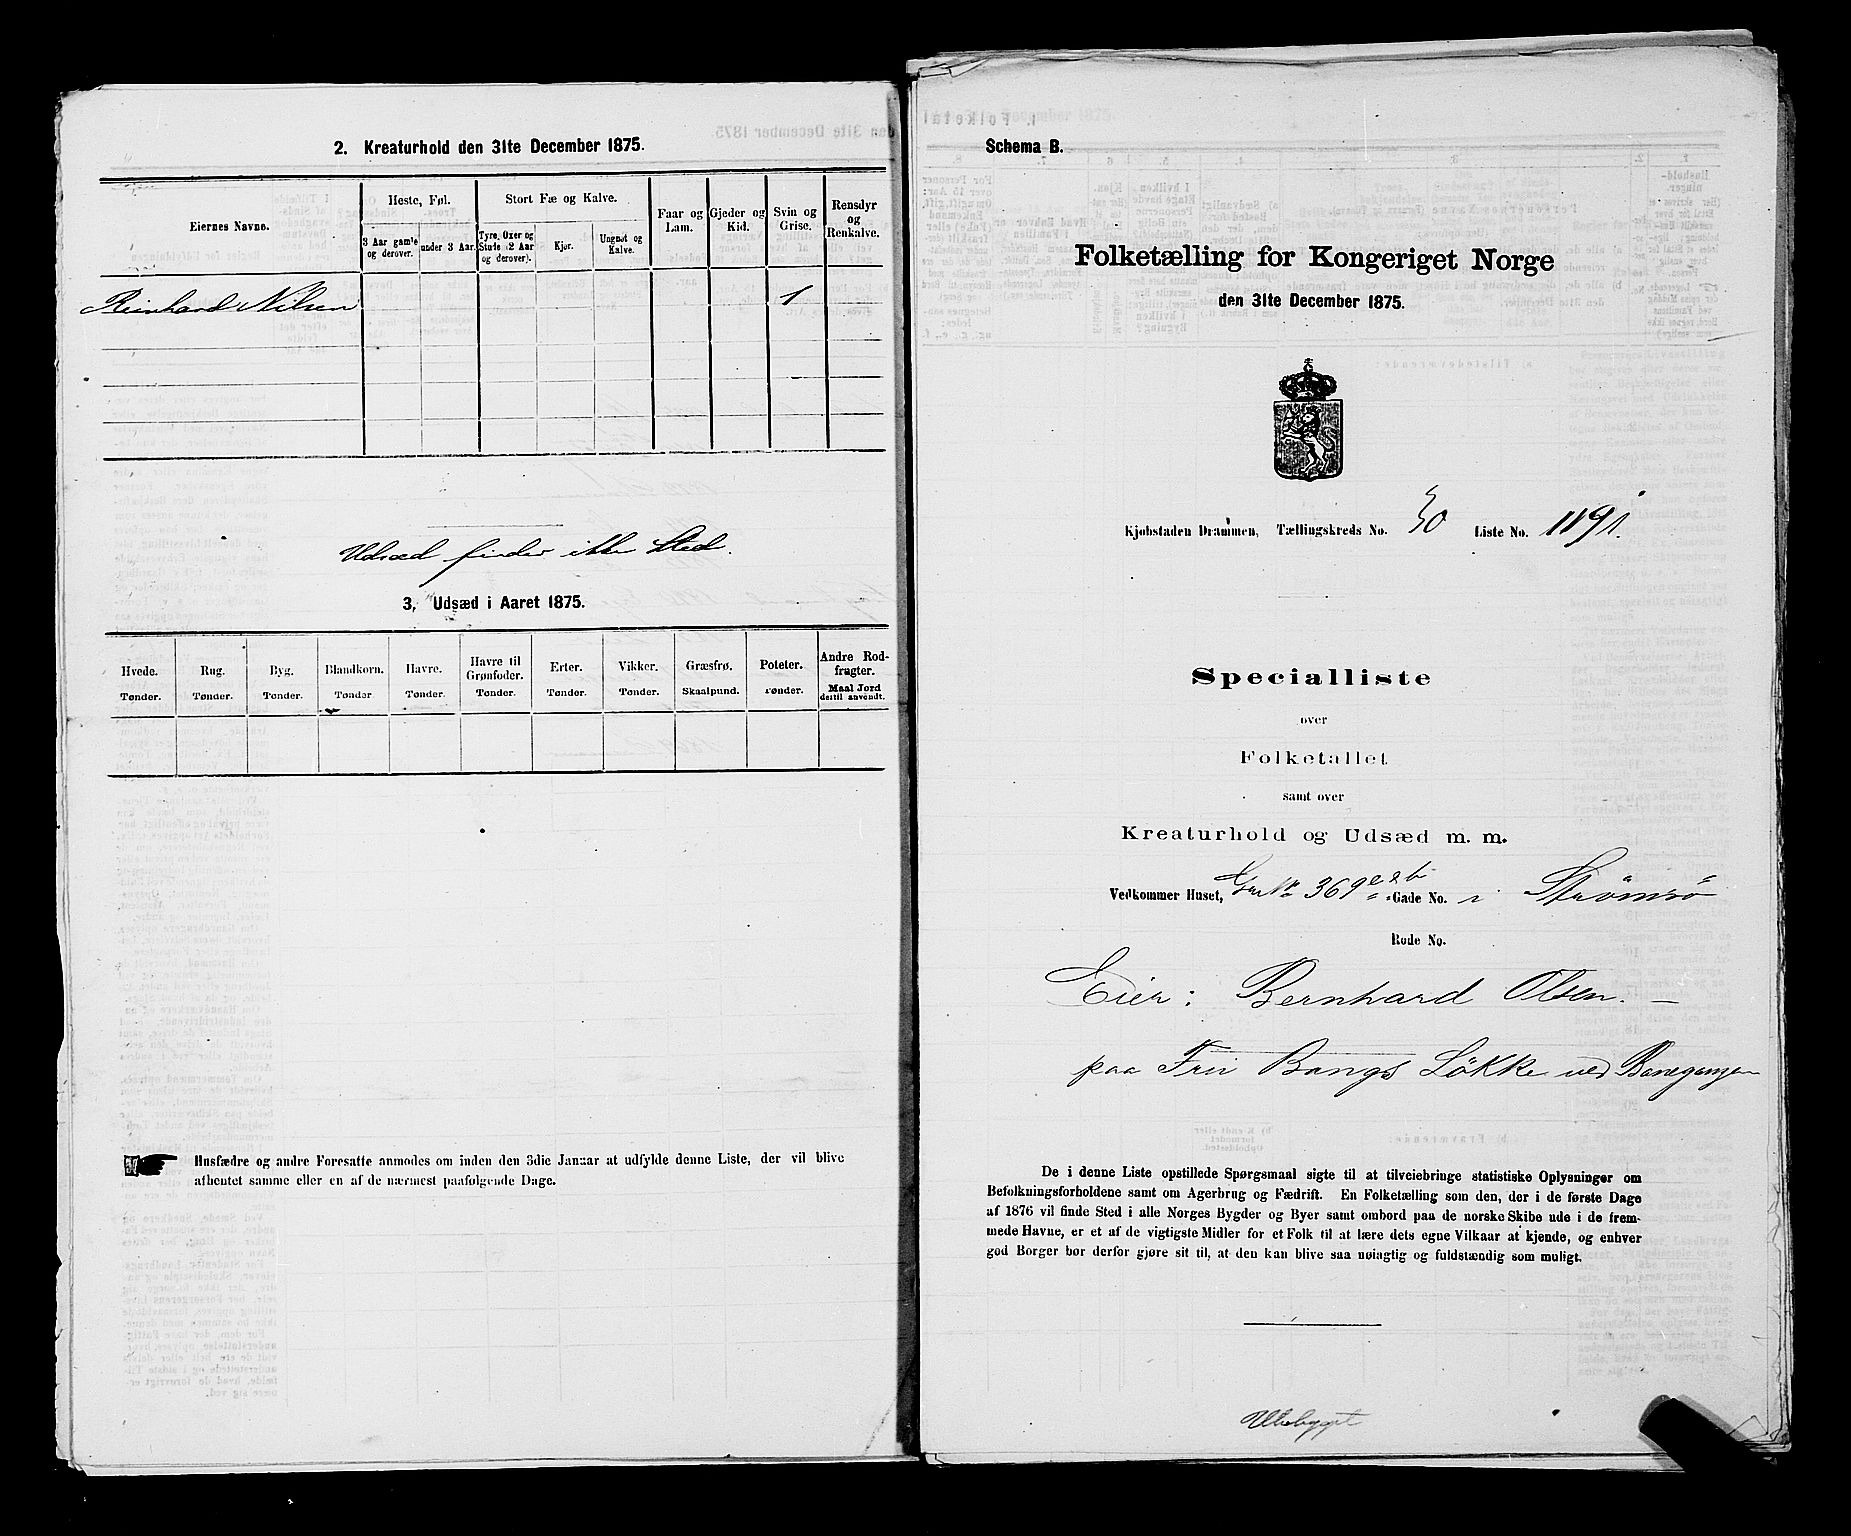 2. Kreaturhold den 31te December 1875.
Eiernes Navne.
Heste, Føl.
Stort Fæ og Kalve.
Faar og Lam.
Gjeder og Kid.
Svin og Grise.
Rensdyr og Renkalve.
3 Aar gamle og derover.
under 3 Aar.
Tyre, Oxer og Stude (2 Aar og derover).
Kjør.
Ungnøt og Kalve.
Reinhard Nilsen 1
Udsæd finder ikke Sted.
3. Udsæd i Aaret 1875.
Hvede. Rug. Byg. Blandkorn. Havre. Havre til Grønfoder. Erter. Vikker. Græsfrø. Poteter. Andre Rodfrugter.
Tønder. Tønder. Tønder. Tønder Tønder. Tønder. Tønder. Tønder. Skaalpund. Tønder. Maal Jord dertil anvendt.
Husfædre og andre Foresatte anmodes om inden den 3die Januar at udfylde denne Liste, der vil blive
afhentet samme eller en af de nærmest paafølgende Dage.
Schema B.
Folketælling for Kongeriget Norge
den 31te December 1875.
Kjøbstaden Drammen, Tællingskreds No. 30 Liste No. 1191.
Specialliste
over
Folketallet
samt over
Kreaturhold og Udsæd m. m.
Vedkommer Huset, Gr No 369 Gade No. i Strømsø
Rode No.
Eier: Bernhard Olsen.
paa Fru Bangs Løkke ved Banegangen
De i denne Liste opstillede Spørgsmaal sigte til at tilveiebringe statistiske Oplysninger om
Befolkningsforholdene samt om Agerbrug og Fædrift. En Folketælling som den, der i de første Dage
af 1876 vil finde Sted i alle Norges Bygder og Byer samt ombord paa de norske Skibe ude i de frem-
mede Havne, er et af de vigtigste Midler for et Folk til at lære dets egne Vilkaar at kjende, og enhver
god Borger bør derfor gjøre sit til, at den kan blive saa nøiagtig og fuldstændig som muligt.